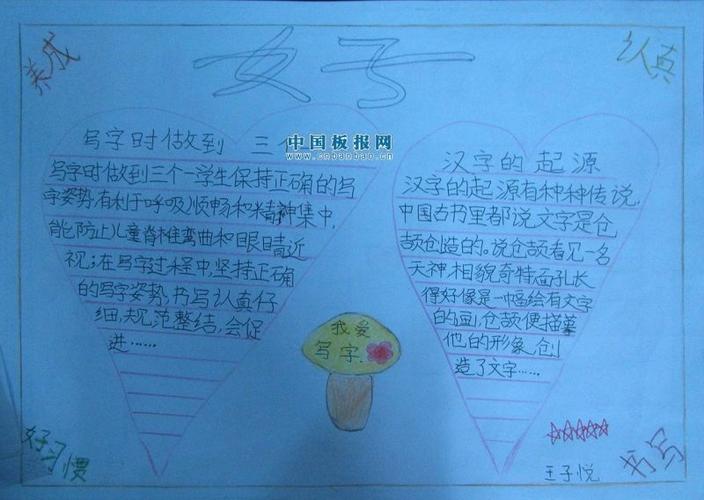 养成
女子
认真
写字时做到 三
中国板报网
www.cnbanbao.cn
写字时做到三个一学生保持正确的写
字姿势,有利于呼吸顺畅和精神集中,
能防止儿童脊椎弯曲和眼睛近
视;在写字过程中,坚持正确
的写字姿势,书写认真仔
细,规范整结,会促
进……
汉字的起源
汉字的起源有种种传说,
中国古书里都说文字是仓
颉创造的。说仓颉看见一名
天神,相貌奇特面孔长
得好像是一幅绘有文字
的画,仓颉便描摹
他的形象,创
造了文字……
我爱
写字.
好习惯
王子悦
书写